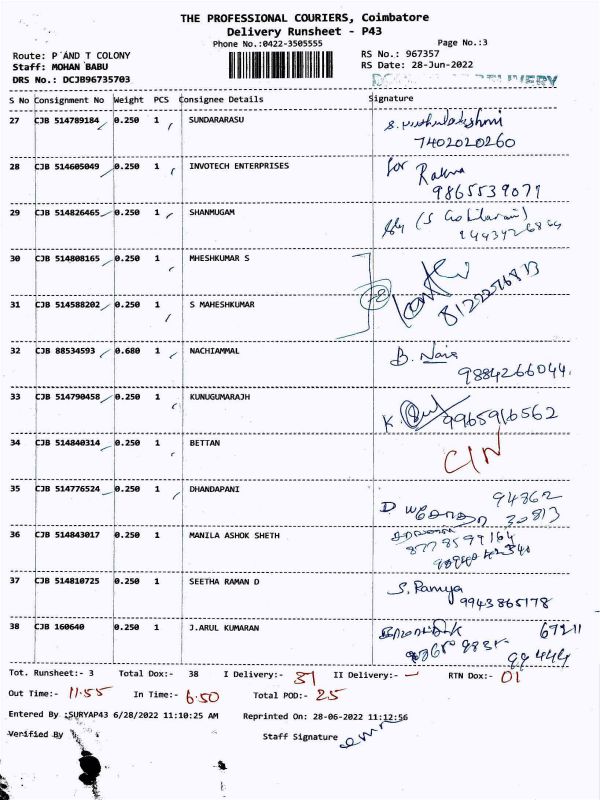 THE PROFESSIONAL COURIERS, Coimbatore
Delivery Runsheet - P43
Phone No.:0422-3505555
Page No.:3
Route: P AND T COLONY
RS No.: 967357
Staff: MOHAN BABU
RS Date: 28-Jun-2022
DRS No.: DCJB96735703
DELIVERY
S No Consignment No Weight PCS Consignee Details Signature
27 CJB 514789184 0.250 1 SUNDARARASU S. Muthulakshmi
7402020260
28 CJB 514605049 0.250 1 INVOTECH ENTERPRISES for
9865539071
29 CJB 514826465 0.250 1 SHANMUGAM
30 CJB 514808165 0.250 1 MHESHKUMAR S
8122276813
31 CJB 514588202 0.250 1 S MAHESHKUMAR
32 CJB 88534593 0.680 1 NACHIAMMAL B.
9884266044
33 CJB 514790458 0.250 1 KUNUGUMARAJH K.
9965916562
34 CJB 514840314 0.250 1 BETTAN CIN
35 CJB 514776524 0.250 1 DHANDAPANI 94862
30813
36 CJB 514843017 0.250 1 MANILA ASHOK SHETH
8778599164
37 CJB 514810725 0.250 1 SEETHA RAMAN D S. Ramya
9943865178
38 CJB 160640 0.250 1 J.ARUL KUMARAN 67211
99444
Tot. Runsheet:- 3 Total Dox:- 38 I Delivery:- 37 II Delivery:- - RTN Dox:- 01
Out Time:- 11.55 In Time:- 6.50 Total POD:- 25
Entered By :SURYAP43 6/28/2022 11:10:25 AM Reprinted On: 28-06-2022 11:12:56
Verified By Staff Signature